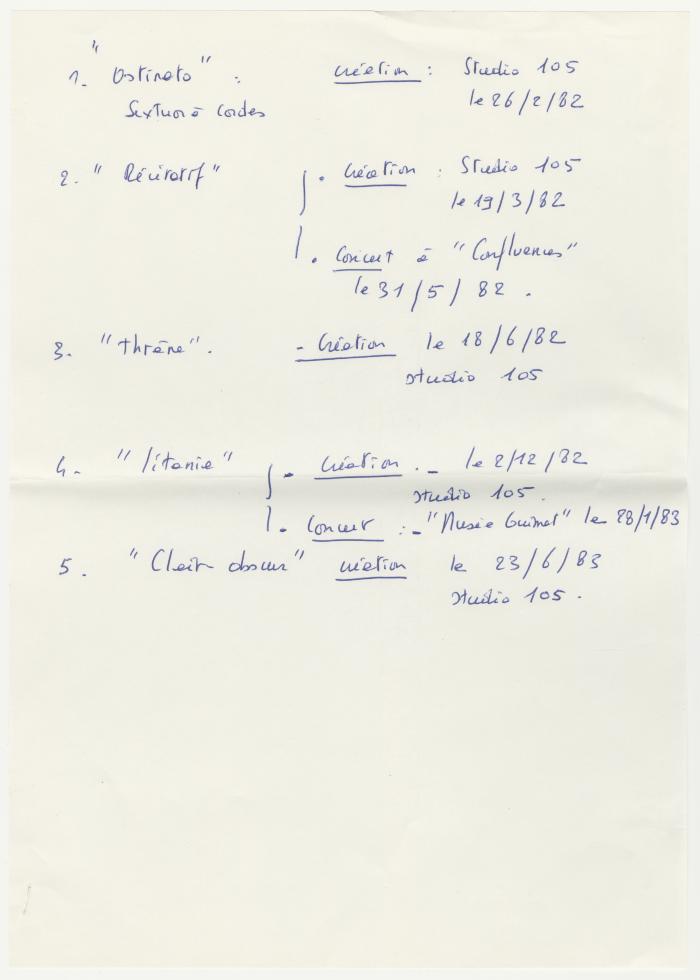 1. "Ostinato" : création : Studio 105
Sextuor à Cordes le 26/2/82
2. "Récitatif" . création : Studio 105
le 19/3/82
. Concert à "Confluences"
le 31/5/82.
3. "thrène". - Création le 18/6/82
studio 105
4. "litanie" - Création . - le 2/12/82
studio 105.
. Concert : - "Musée Guimet" le 28/1/83
5. "Clair obscur" création le 23/6/83
studio 105.